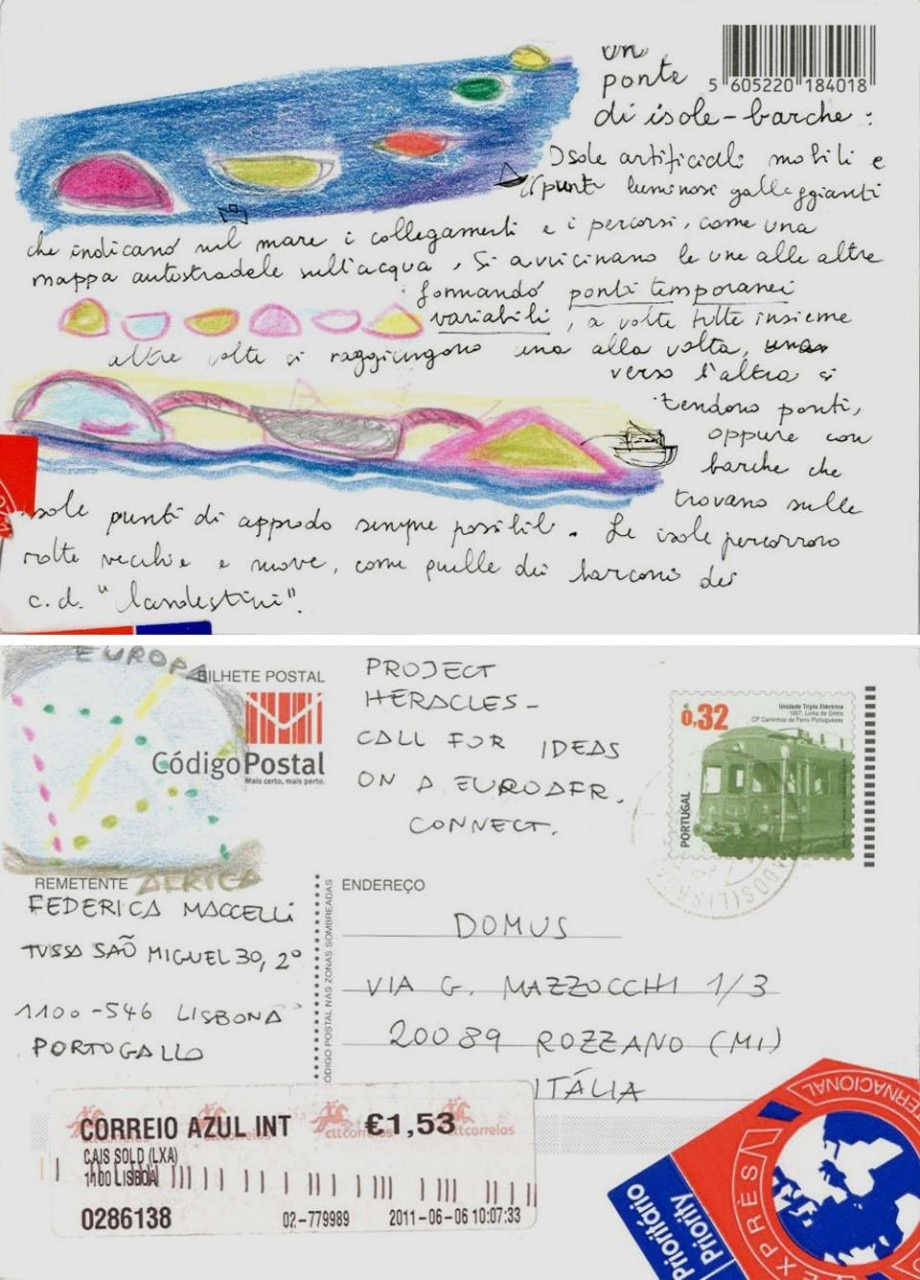 un
ponte
5 605220 184018
di isole-barche:
Isole artificiali mobili e
punti luminosi galleggianti
che indicano nel mare i collegamenti e i percorsi, come una
mappa autostradale sull'acqua, si avvicinano le une alle altre
formando ponti temporanei
variabili, a volte tutte insieme
altre volte si raggiungono una alla volta,
verso l'altra si
tendono ponti,
oppure con
barche che
trovano sulle
isole punti di approdo sempre possibili. Le isole percorrono
rotte vecchie e nuove, come quelle dei barconi dei
c.d. "clandestini".
EUROPA
BILHETE POSTAL
CódigoPostal
Mais certo, mais perto.
AFRICA
PROJECT
HERACLES-
CALL FOR IDEAS
ON A EUROAFR.
CONNECT.
€0,32
Unidade Tripla Eléctrica
1957, Linha de Sintra
CP Caminhos de Ferro Portugueses
PORTUGAL
REMETENTE
FEDERICA MACCELLI
SAÕ MIGUEL 30, 2º
1100-546 LISBONA
PORTOGALLO
CÓDIGO POSTAL NAS ZONAS SOMBREADAS
ENDEREÇO
DOMUS
VIA G. MAZZOCCHI 1/3
20089 ROZZANO (MI)
ITÁLIA
CORREIO AZUL INT €1,53
cttcorreios
CAIS SOLD (LXA)
1100 LISBOA
0286138 02-779989 2011-06-06 10:07:33
Prioritário
Priority
EXPRÈS